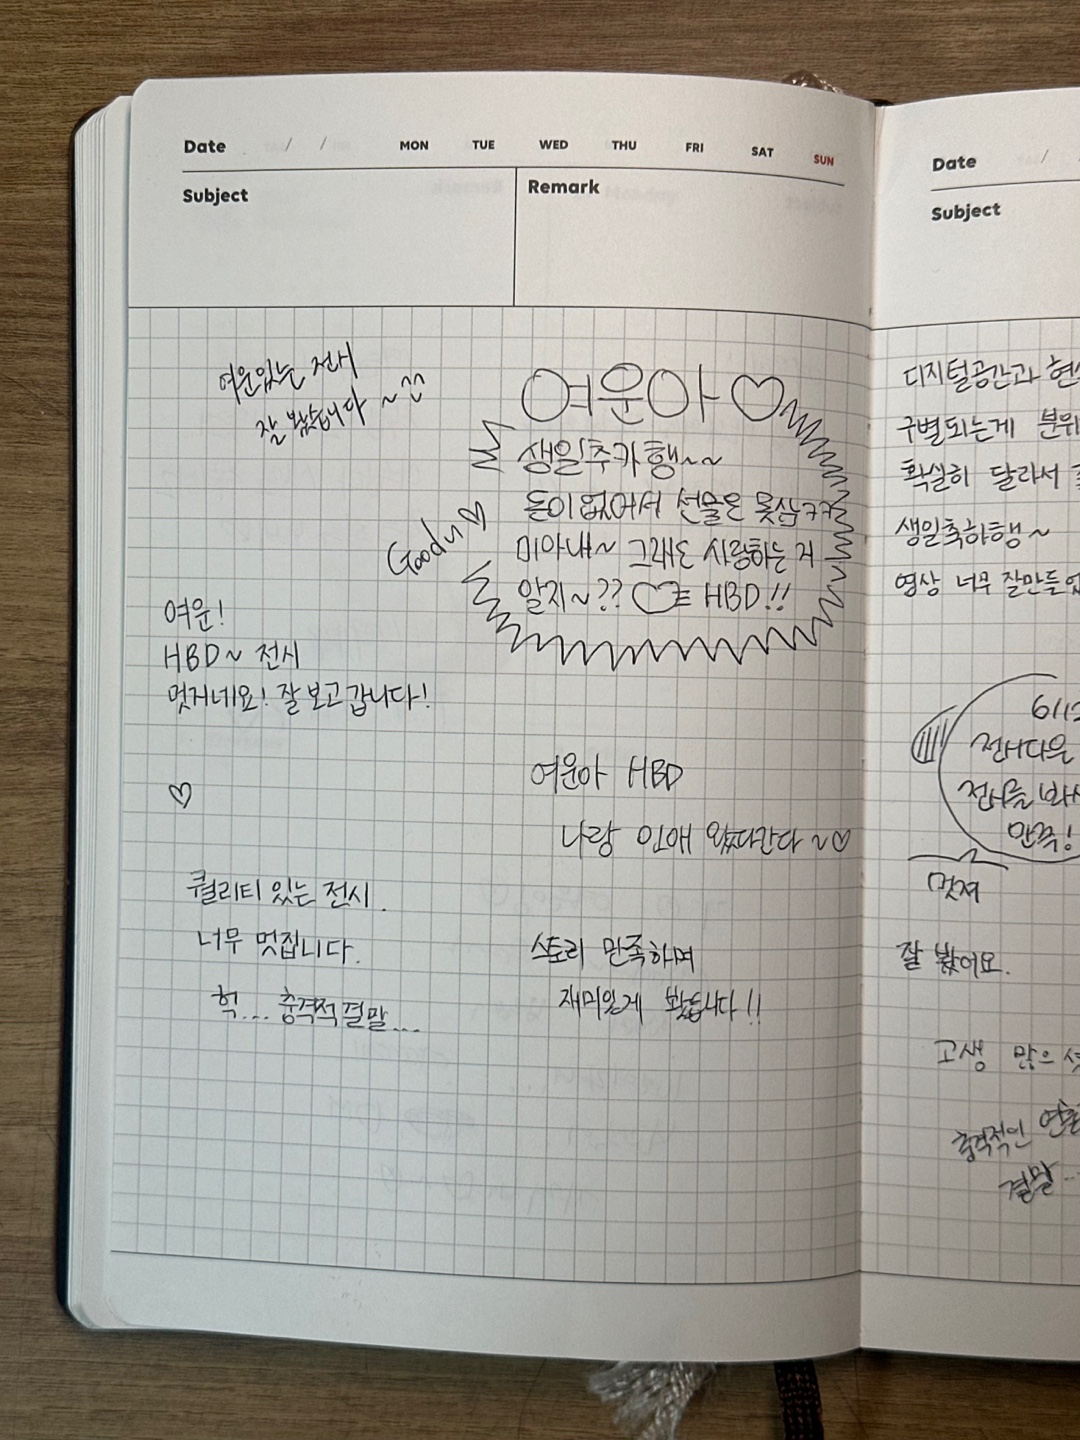 Date / / MON TUE WED THU FRI SAT SUN
Subject
Remark
여운있는 전시
잘 봤습니다 ~^^
여운아♡
생일추카행~~
돈이 없어서 선물은 못삼ㅋㅋ
미아내~ 그래도 사랑하는 거
알지~?? HBD!!
Goody♡
여운!
HBD~ 전시
멋지네요! 잘 보고 갑니다!
♡
여운아 HBD
나랑 인애 왔다간다~♡
퀄리티 있는 전시.
너무 멋집니다.
헉... 충격적 결말...
스토리 만족하며
재미있게 봤습니다!!
Date /
Subject
디지털공간과
구별되는게 분위
확실히 달라서
생일축하행~
영상 너무 잘만들었
전시다운
전시를 봐서
만족!
멋져
잘 봤어요.
고생 많으셨
충격적인
결말..